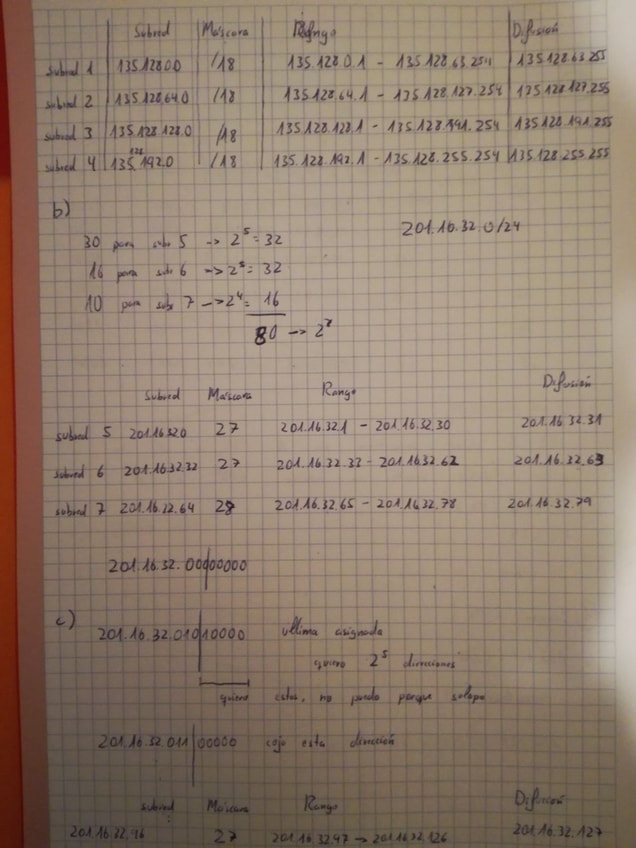 Subred Máscara Rango Difusión
subred 1 135.128.0.0 /18 135.128.0.1 - 135.128.63.254 135.128.63.255
subred 2 135.128.64.0 /18 135.128.64.1 - 135.128.127.254 135.128.127.255
subred 3 135.128.128.0 /18 135.128.128.1 - 135.128.191.254 135.128.191.255
subred 4 135.128.192.0 /18 135.128.192.1 - 135.128.255.254 135.128.255.255
b)
201.16.32.0/24
30 para subr 5 -> 2^5 = 32
16 para subr 6 -> 2^5 = 32
10 para subr 7 -> 2^4 = 16
80 -> 2^7
Subred Máscara Rango Difusión
subred 5 201.16.32.0 27 201.16.32.1 - 201.16.32.30 201.16.32.31
subred 6 201.16.32.32 27 201.16.32.33 - 201.16.32.62 201.16.32.63
subred 7 201.16.32.64 28 201.16.32.65 - 201.16.32.78 201.16.32.79
201.16.32.00|000000
c)
201.16.32.010|10000 ultima asignada
quiero 2^5 direcciones
quiero estas, no puedo porque solapa
201.16.32.011|00000 cojo esta dirección
subred Máscara Rango Difusión
201.16.32.96 27 201.16.32.97 -> 201.16.32.126 201.16.32.127